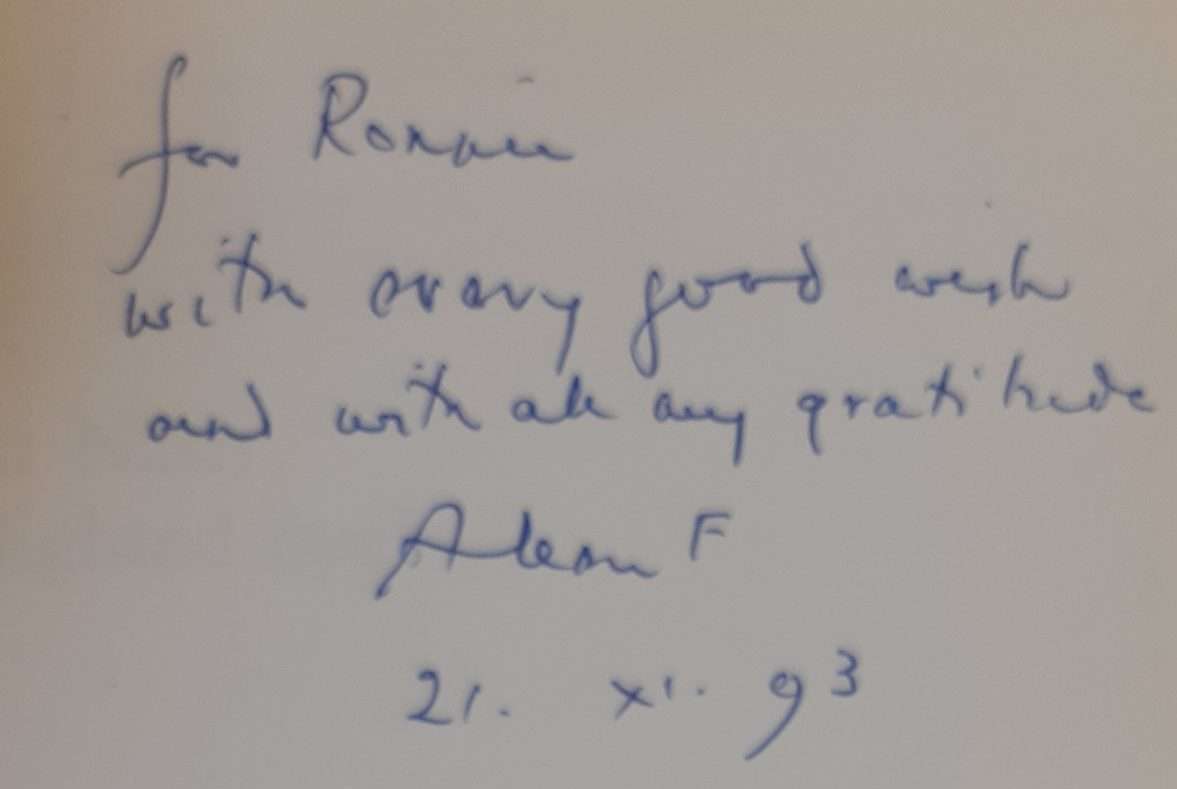 for Ronan
with every good wish
and with all my gratitude
F
21. xi. 93